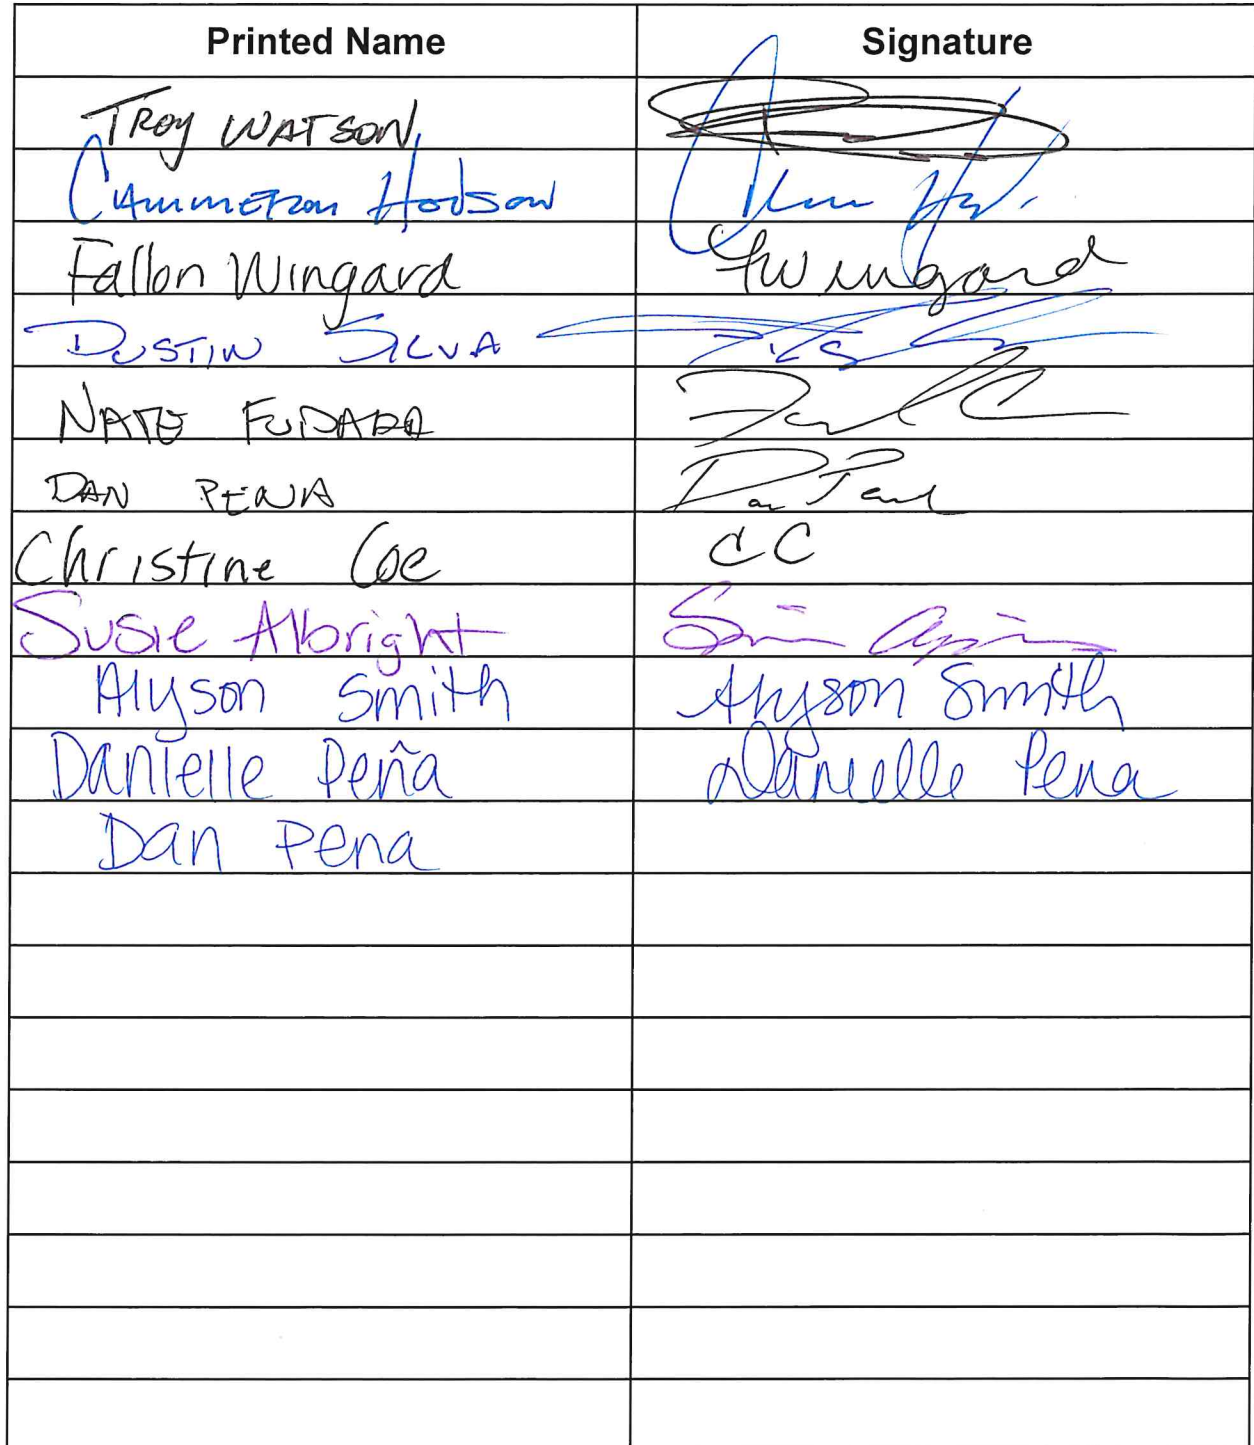 Printed Name Signature
TROY WATSON
CAMMERON HODSON
Fallon Wingard FWingard
DUSTIN SILVA
NATE
DAN PENA Dan Pena
Christine Coe CC
Susie Albright
Alyson Smith Alyson Smith
Danielle Peña Danielle Pena
Dan Pena